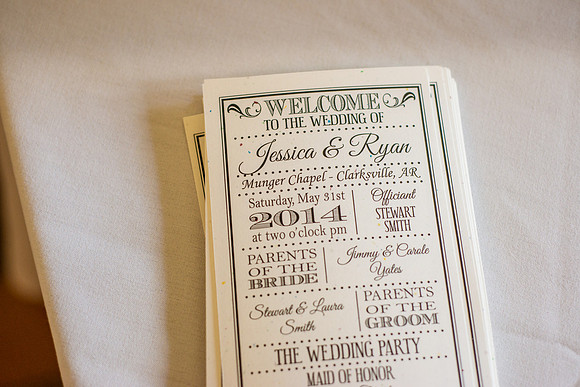 WELCOME
TO THE WEDDING OF
Jessica & Ryan
Munger Chapel - Clarksville, AR
Saturday, May 31st
2014
at two o'clock pm
Officiant
STEWART
SMITH
PARENTS
OF THE
BRIDE
Jimmy & Carole
Yates
Stewart & Laura
Smith
PARENTS
OF THE
GROOM
THE WEDDING PARTY
MAID OF HONOR